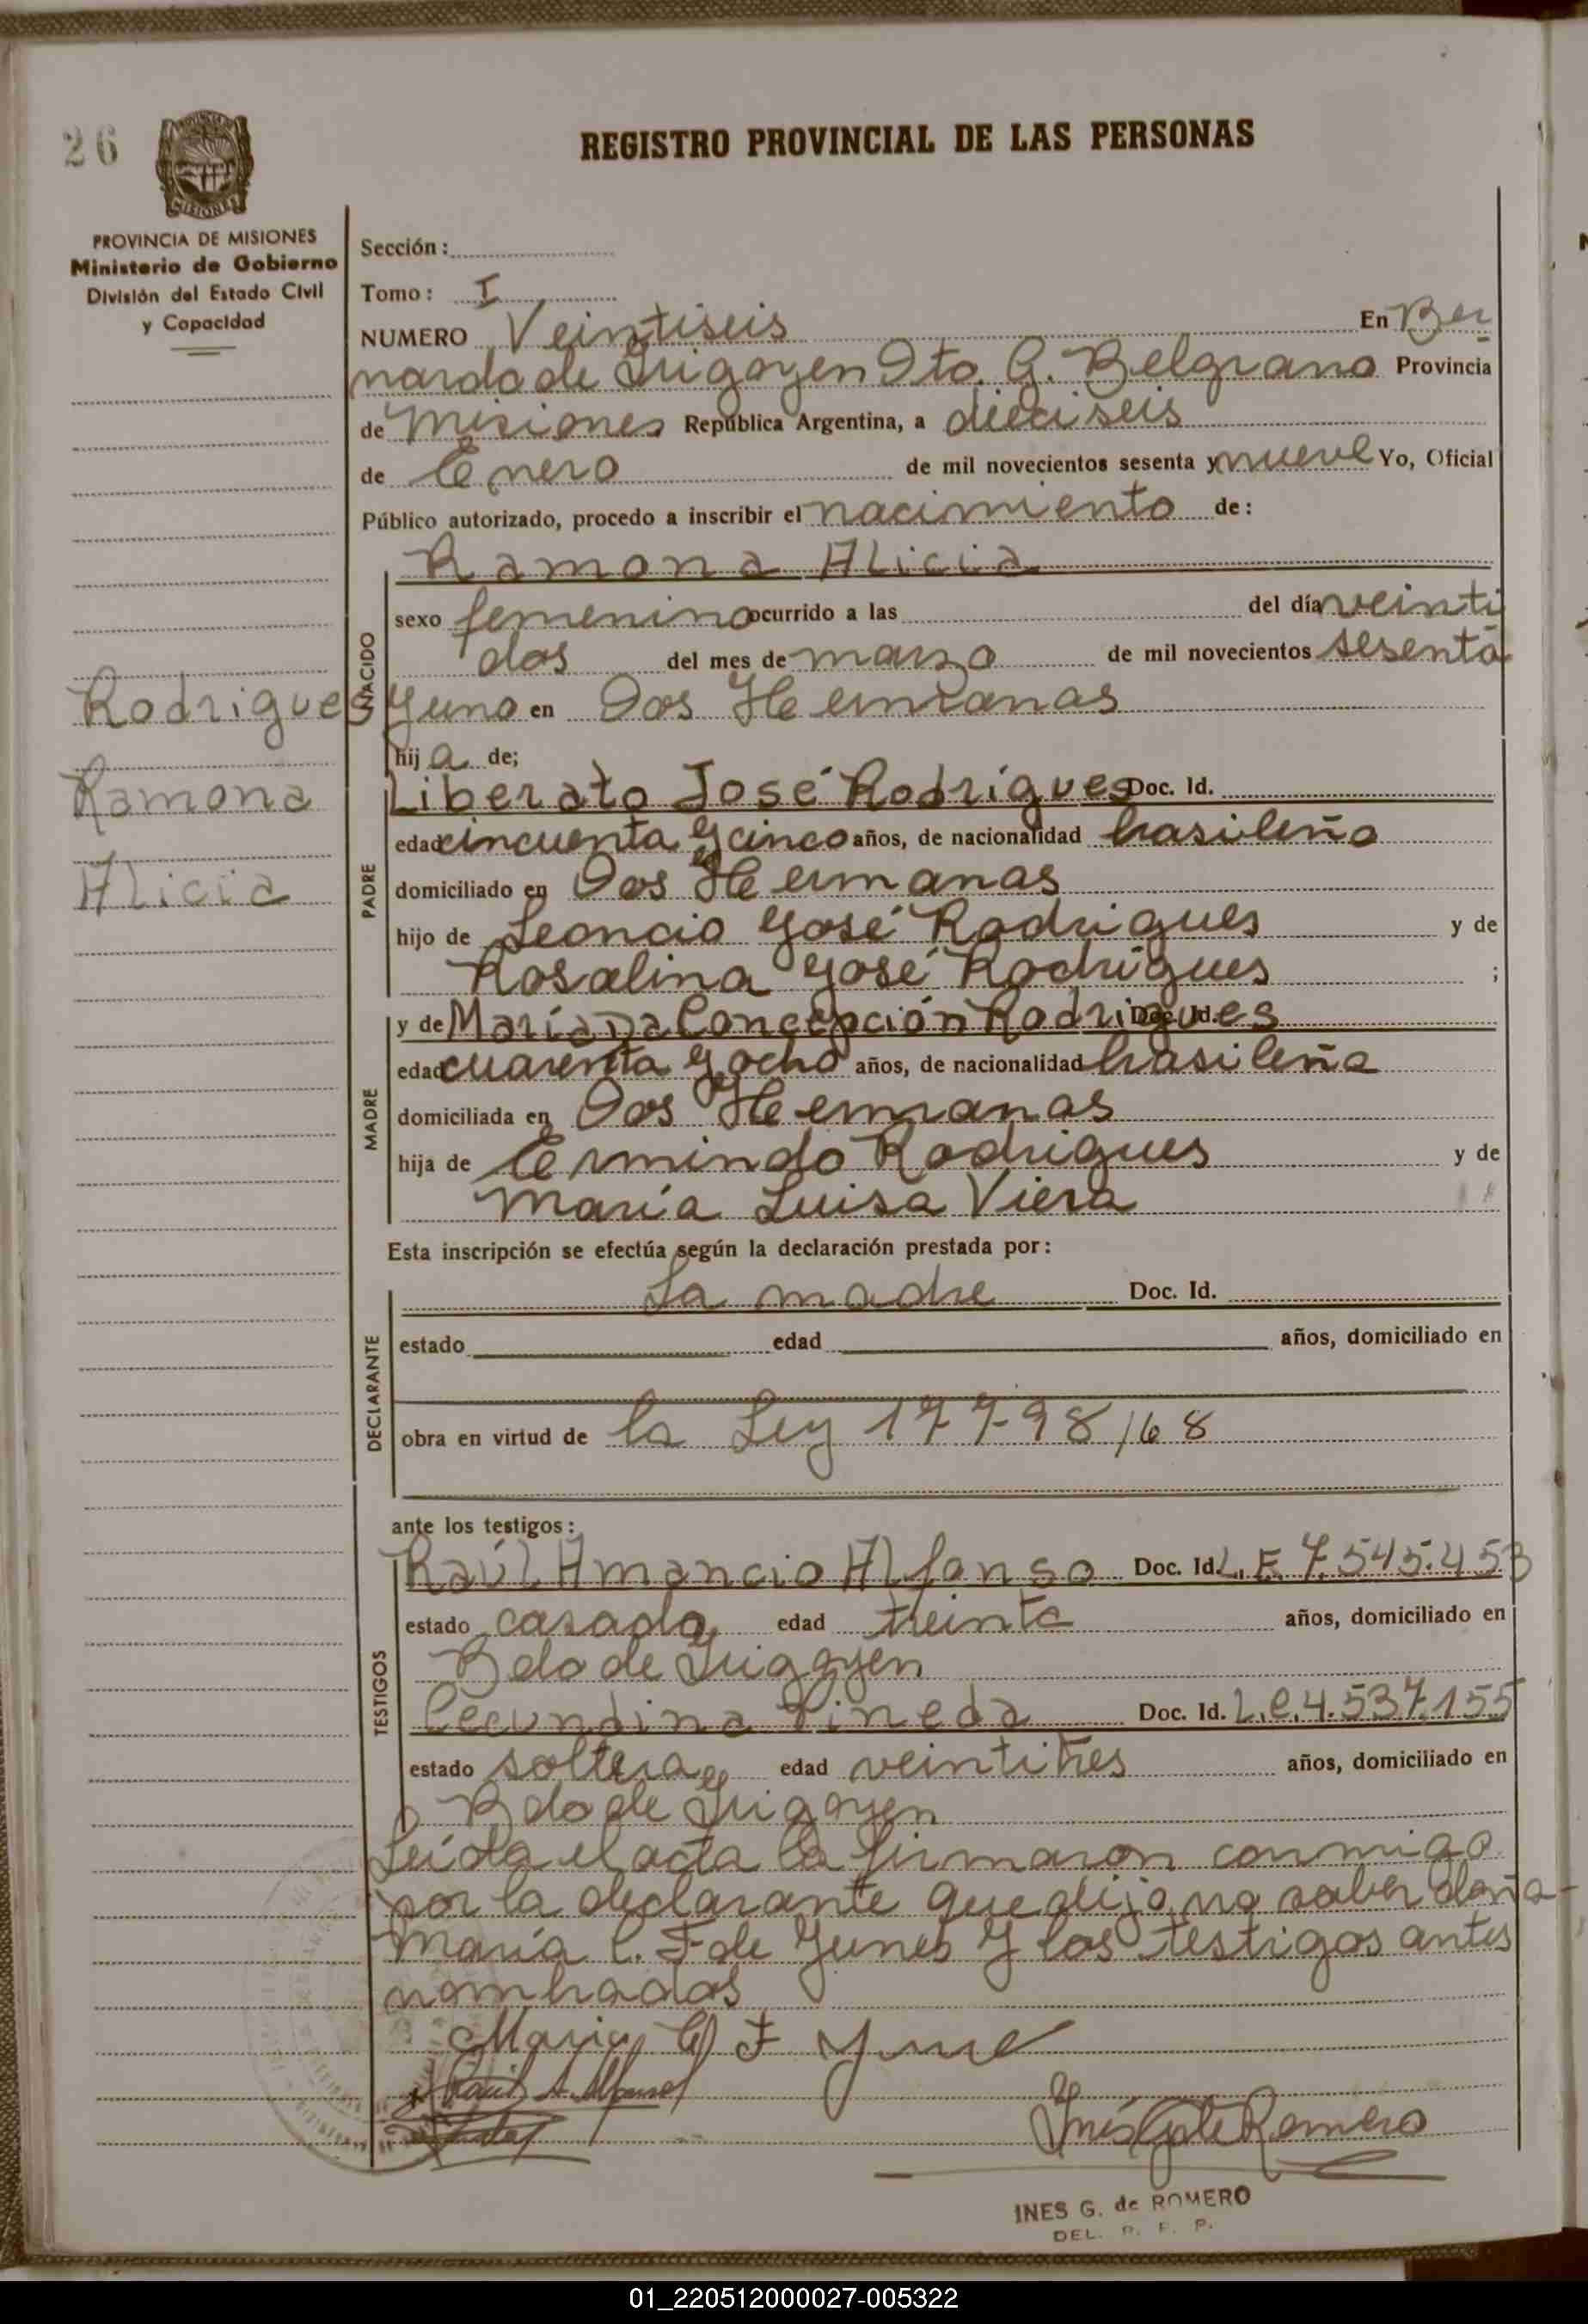 26
REGISTRO PROVINCIAL DE LAS PERSONAS
PROVINCIA DE MISIONES
Ministerio de Gobierno
División del Estado Civil
y Capacidad
Rodrigues
Ramona
Alicia
Sección:
Tomo: I
NUMERO Veintiseis En Ber
nardo de Irigoyen Dto. G. Belgrano Provincia
de Misiones República Argentina, a dieciseis
de Enero de mil novecientos sesenta y nueve Yo, Oficial
Público autorizado, procedo a inscribir el nacimiento de:
Ramona Alicia
NACIDO
sexo femenino ocurrido a las del día veinti
dos del mes de marzo de mil novecientos sesenta
y uno en Dos Hermanas
hija de;
PADRE
Liberato José Rodrigues Doc. Id.
edad cincuenta y cinco años, de nacionalidad brasileño
domiciliado en Dos Hermanas
hijo de Leoncio José Rodrigues y de
Rosalina José Rodrigues ;
MADRE
y de María Da Concepción Rodrigues Doc. Id.
edad cuarenta y ocho años, de nacionalidad brasileña
domiciliada en Dos Hermanas
hija de Ermindo Rodrigues y de
María Luisa Viera
Esta inscripción se efectúa según la declaración prestada por:
DECLARANTE
La madre Doc. Id.
estado edad años, domiciliado en
obra en virtud de la Ley 17798/68
ante los testigos:
TESTIGOS
Raúl Amancio Alfonso Doc. Id. L.E. 7.545.453
estado casado edad treinta años, domiciliado en
Bdo de Irigoyen
Cecundina Pineda Doc. Id. L.C. 4.537.155
estado soltera edad veintitres años, domiciliado en
Bdo de Irigoyen
Leída el acta la firmaron conmigo
por la declarante que dijo no saber doña
María C. F de Yunes y los testigos antes
nombrados
Maria C F
Raul A. Alfonso
Inés G de Romero
INES G. de ROMERO
DEL. R. P. P.
01_220512000027-005322